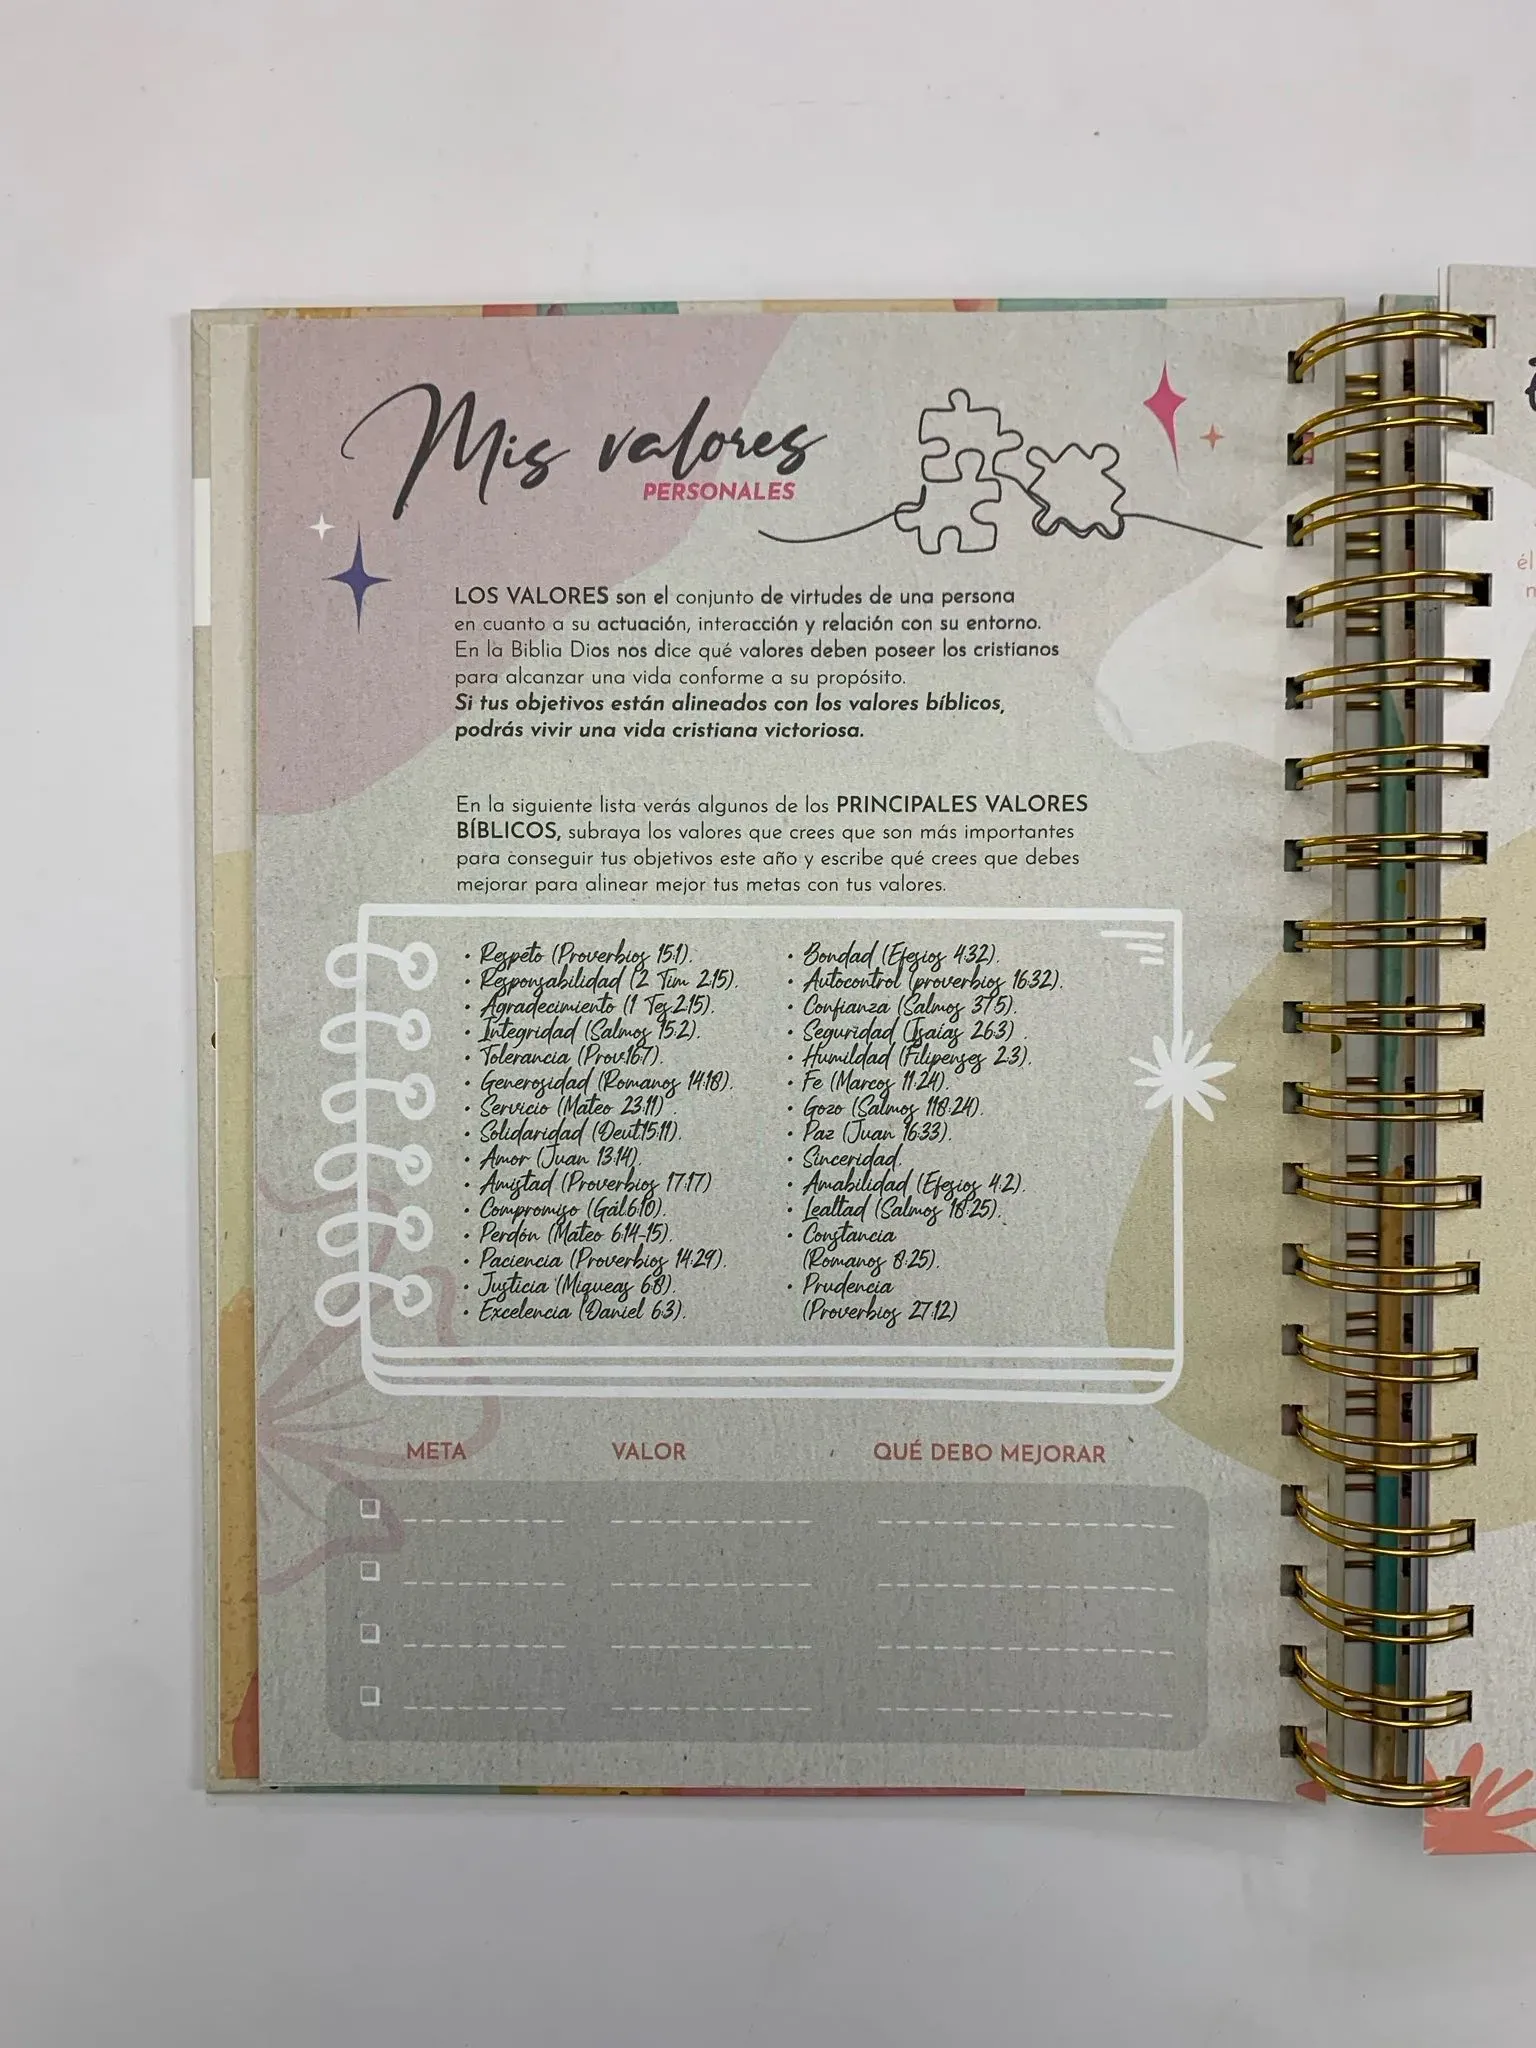 Mis valores
PERSONALES
LOS VALORES son el conjunto de virtudes de una persona
en cuanto a su actuación, interacción y relación con su entorno.
En la Biblia Dios nos dice qué valores deben poseer los cristianos
para alcanzar una vida conforme a su propósito.
Si tus objetivos están alineados con los valores bíblicos,
podrás vivir una vida cristiana victoriosa.
En la siguiente lista verás algunos de los PRINCIPALES VALORES
BÍBLICOS, subraya los valores que crees que son más importantes
para conseguir tus objetivos este año y escribe qué crees que debes
mejorar para alinear mejor tus metas con tus valores.
• Respeto (Proverbios 15:1).
• Responsabilidad (2 Tim 2:15).
• Agradecimiento (1 Tes 2:15).
• Integridad (Salmos 15:2).
• Tolerancia (Prov.16:7).
• Generosidad (Romanos 14:18).
• Servicio (Mateo 23:11) .
• Solidaridad (Deut.15:11).
• Amor (Juan 13:14).
• Amistad (Proverbios 17:17)
• Compromiso (Gál.6:10).
• Perdón (Mateo 6:14-15).
• Paciencia (Proverbios 14:29).
• Justicia (Miqueas 6:8).
• Excelencia (Daniel 6:3).
• Bondad (Efesios 4:32).
• Autocontrol (proverbios 16:32).
• Confianza (Salmos 37:5).
• Seguridad (Isaías 26:3) .
• Humildad (Filipenses 2:3).
• Fe (Marcos 11:24).
• Gozo (Salmos 118:24).
• Paz (Juan 16:33).
• Sinceridad.
• Amabilidad (Efesios 4:2).
• Lealtad (Salmos 18:25).
• Constancia
(Romanos 8:25).
• Prudencia
(Proverbios 27:12)
META VALOR QUÉ DEBO MEJORAR
él